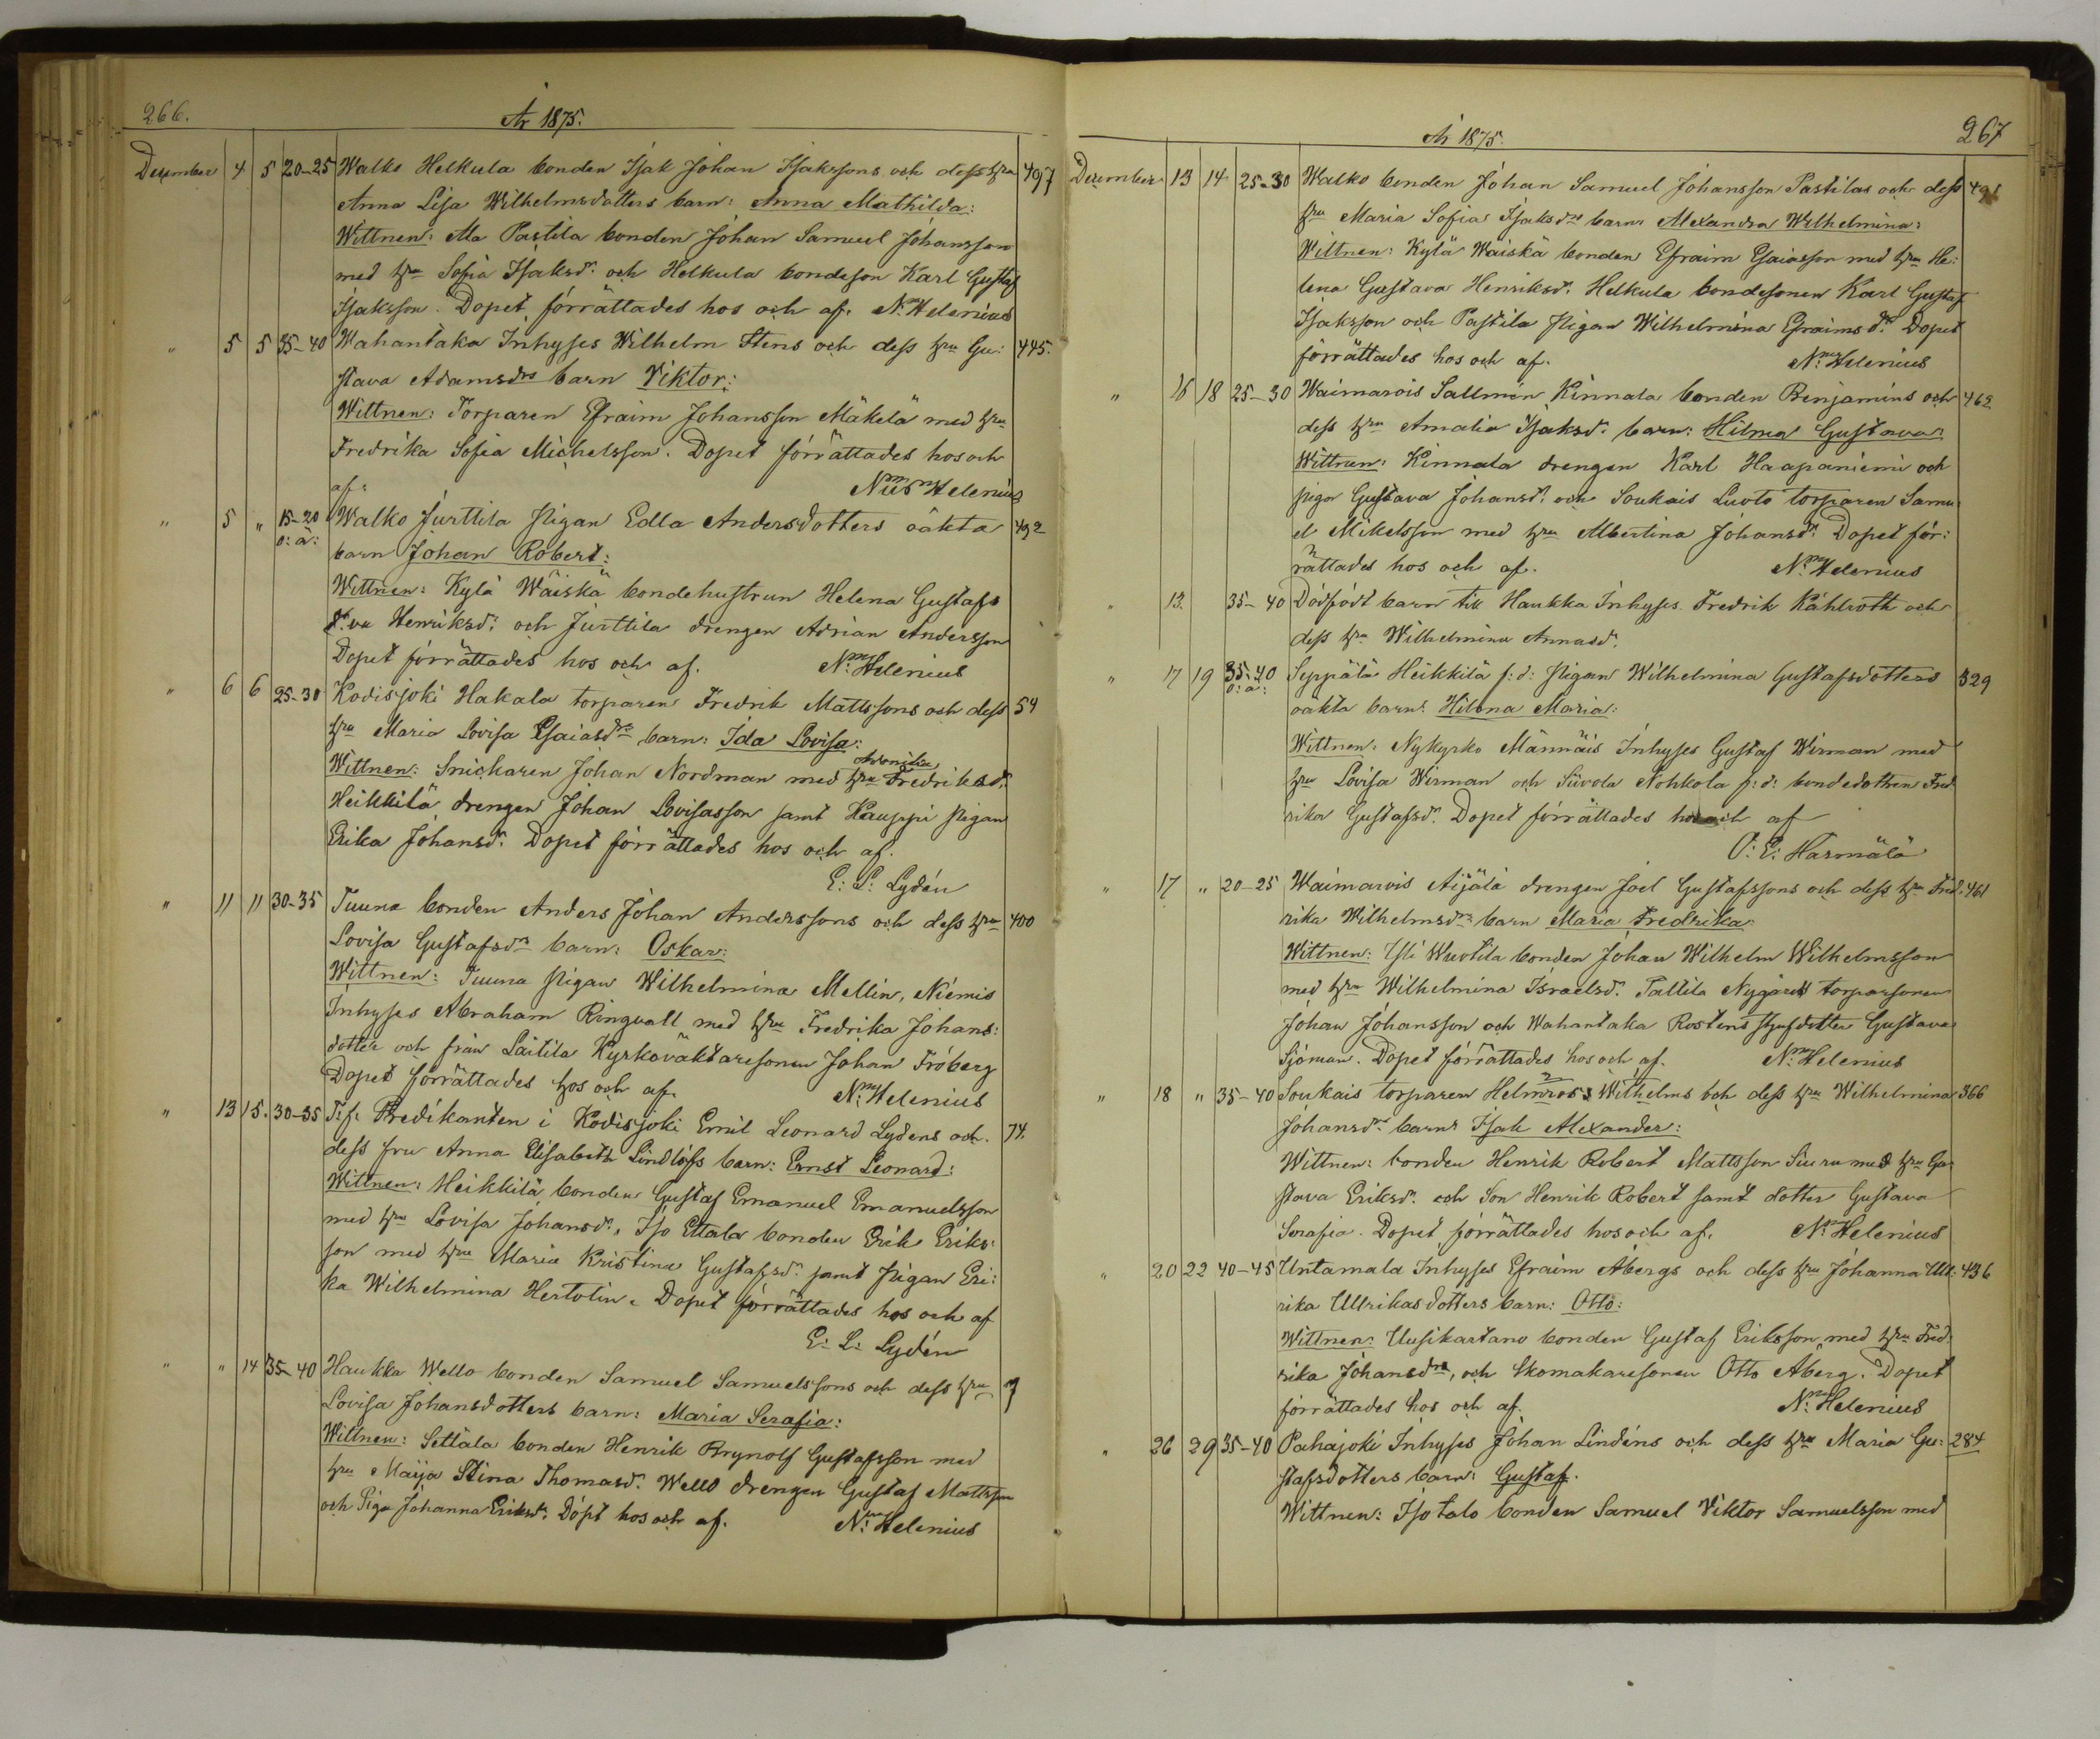 266.
År 1875.
December 4 5 20-25 Walko Helkula bonden Isak Johan Isakssons och dess hru 497
Anna Lisa Wilhelmsdotters barn: Anna Mathilda:
Wittnen: Ala Pastila bonden Johan Samuel Johansson
med hru Sofia Isaksdr. och Helkula bondeson Karl Gustaf
Isaksson. Dopet förrättades hos och af. N:m Helenius
" 5 5 35-40 Wahantaka Inhyses Wilhelm Stens och dess hru Gu: 445.
stava Adamsdrs barn Viktor:
Wittnen: Torparen Efraim Johansson Mäkelä med hru
Fredrika Sofia Michelsson. Dopet förrättades hos och
af: Helenius
" 5 " 15-20 Walko Jurttila Pigan Edla Andersdotters oäkta 492
o: ä: barn Johan Robert:
Wittnen: Kylä Wäiskä bondehustrun Helena Gustafs
Henriksdr: och Jurttila drengen Adrian Andersson
Dopet förrättades hos och af. N:m Helenius
" 6 6 25-30 Kodisjoki Hakala torparen Fredrik Mattssons och dess 54
hru Maria Lovisa Esaiasdrs barn: Ida Lovisa:
Wittnen: Snickaren Johan Nordman med hru Fredriksdr.
Heikkilä drengen Johan Lovisasson samt Kauppi Pigan
Erika Johansdr. Dopet förrättades hos och af.
E: L: Lydén
" 11 11 30-35 Tuuna bonden Anders Johan Anderssons och dess hru 400
Lovisa Gustafsdrs barn: Oskar:
Wittnen: Tuuna Pigan Wilhelmina Mellin, Niemis
Inhyses Abraham Ringvall med hru Fredrika Johans:
dotter och från Laitila Kyrkoväktaresonen Johan Fröberg
Dopet förrättades hos och af. N:m Helenius
" 13 15. 30-35 T:f: Predikanten i Kodisjoki Emil Leonard Lydens och 74.
dess fru Anna Elisabeth Lindlöfs barn: Ernst Leonard:
Wittnen: Heikkilä bonden Gustaf Emanuel Emanuelsson
med hru Lovisa Johansdr., Iso Ettala bonden Erik Eriks:
son med hru Maria Kristina Gustafsdr. samt Pigan Eri:
ka Wilhelmina Hertolin. Dopet förrättades hos och af
E: L: Lydén
" " 14 35-40 Haukka Wello bonden Samuel Samuelssons och dess hru 7
Lovisa Johansdotters barn: Maria Serafia:
Wittnen: Settälä bonden Henrik Brynolf Gustafsson med
hru Maija Stina Thomasdr. Wello drengen Gustaf Mattsson
och Piga Johanna Eriksdr. Döpt hos och af. N:m Helenius
År 1875.
267
December 13 14 25-30 Walko bonden Johan Samuel Johansson Pastilas och dess
hru Maria Sofia Isaksdrs barn: Alexandra Wilhelmina:
Wittnen: Kylä Wäiskä bonden Efraim Esaiasson med hru He:
lena Gustava Henriksdr. Helkula bondesonen Karl Gustaf
Isaksson och Pastila Pigan Wilhelmina Efraimsdr. Dopet
förrättades hos och af. N:m Helenius
" 16 18 25-30 Waimarois Sallmén Kinnala bonden Benjamins och 462
dess hru Amalia Isaksdr. barn: Hilma Gustava:
Wittnen: Kinnala drengen Karl Haapaniemi och
piga Gustava Johansdr. och Soukais Luoto torparen Samu
el Mikelsson med hru Albertina Johansdr. Dopet för:
rättades hos och af. N:m Helenius
" 13. 35-40 Dödfödt barn till Haukka Inhyses Fredrik Kählroth och
dess hru Wilhelmina Annasdr.
" 17 19 35-40 Seppälä Heikkilä f: d: Pigan Wilhelmina Gustafsdotters 329
o: ä: oäkta barn: Hilma Maria:
Wittnen: Nykyrko Männäis Inhyses Gustaf Wirman med
hru Lovisa Wirman och Siivola Nohkola f: d: bondedottren Fred
rika Gustafsdr. Dopet förrättades hos och af
Harmälä
" 17 " 20-25 Waimarois Äijälä drengen Joel Gustafssons och dess hru Fred: 461
rika Wilhelmsdrs barn Maria Fredrika:
Wittnen: Yli Wuotila bonden Johan Wilhelm Wilhelmsson
med hru Wilhelmina Israelsdr. Tallila Nygårds torparsonen
Johan Johansson och Wahantaka Rostens styfdotter Gustava
Sjöman. Dopet förrättades hos och af. N:m Helenius
" 18 " 35-40 Soukais torparen Helmroos Wilhelms och dess hru Wilhelmina 366
Johansdrs barn Isak Alexander:
Wittnen: bonden Henrik Robert Mattsson Siuru med hru Gu:
stava Eriksdr. och Son Henrik Robert samt dotter Gustava
Serafia. Dopet förrättades hos och af. N:m Helenius
" 20 22 40-45 Untamala Inhyses Efraim Åbergs och dess hru Johanna Ull: 436
rika Ullrikasdotters barn: Otto:
Wittnen: Uusikartano bonden Gustaf Eriksson med hru Fred:
rika Johansdr., och Skomakaresonen Otto Åberg. Dopet
förrättades hos och af. N:m Helenius
" 26 29 35-40 Pahajoki Inhyses Johan Lindéns och dess hru Maria Gu: 284
stafsdotters barn: Gustaf.
Wittnen: Isotalo bonden Samuel Viktor Samuelsson med